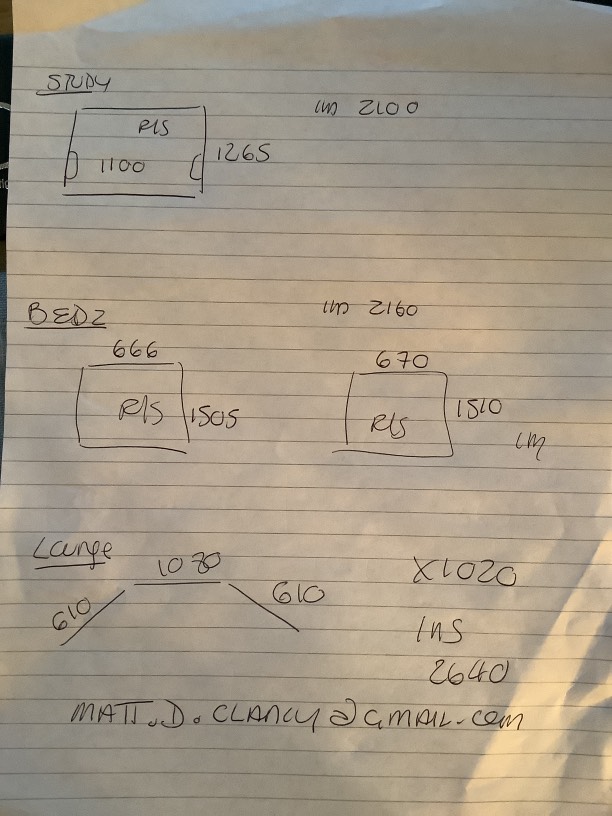 STUDY
R/S
1100
1265
2100
BED2
2160
666
R/S
1505
670
R/S
1510
Lounge
610
1070
610
X1020
INS
2640
MATT.D.CLANCY@GMAIL.COM